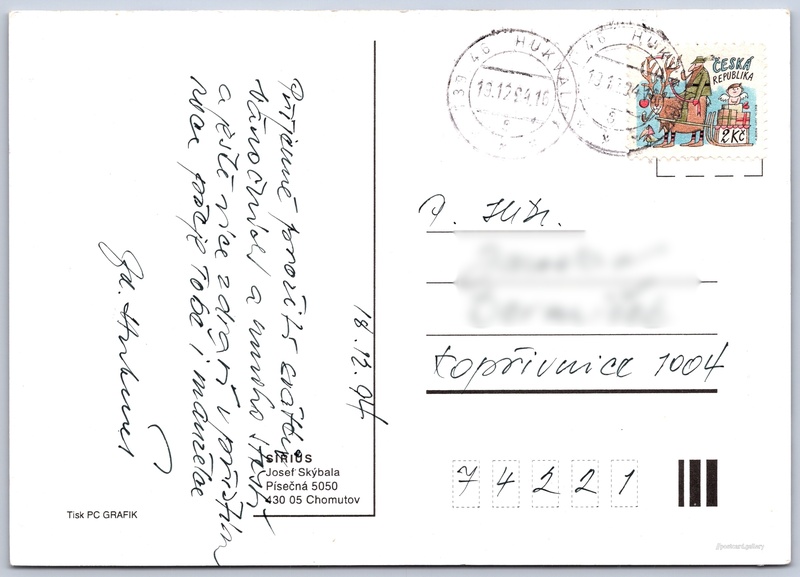 Příjemné prožití svátků
vánočních a mnoho štěstí
a ještě více zdraví v příštím
roce přeje Tobě i manželce
18.12.94
SÍRIUS
Josef Skýbala
Písečná 5050
430 05 Chomutov
Tisk PC GRAFIK
39 46 HUKVALDY
19.12.94.10
ČESKÁ
REPUBLIKA
2 Kč
P. Inž.
Kopřivnice 1004
74221
//postcard.gallery